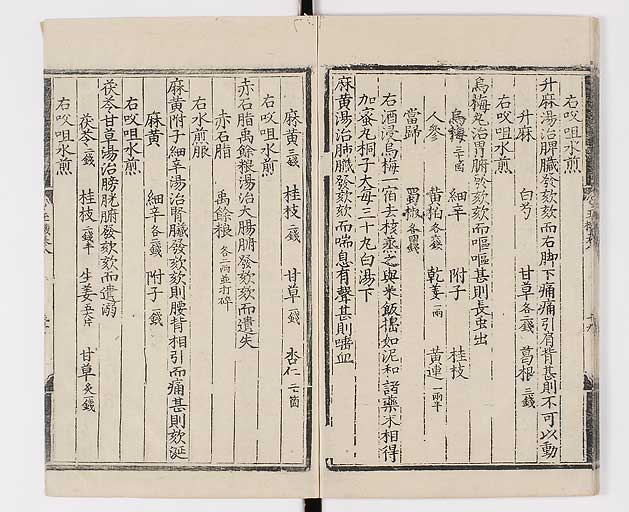 右㕮咀水煎
升麻湯治脾臟發欬欬而右脚下痛痛引肩背甚則不可以動
升麻 白芍 甘草各二錢 葛根三錢
右㕮咀水煎
烏梅丸治胃腑發欬欬而嘔嘔甚則長虫出
烏梅三十箇 細辛 附子 桂枝
人參 黄柏各 錢 乾姜一兩 黄連一兩半
當歸 蜀椒各四錢
右酒浸烏梅一宿去核蒸之與米飯搗如泥和諸藥末相得
加蜜丸桐子大每三十丸白湯下
麻黄湯治肺臟發欬欬而喘息有聲甚則唾血
麻黄三錢 桂枝二錢 甘草一錢 杏仁二十箇
右㕮咀水煎
赤石脂禹餘粮湯治大腸腑發欬欬而遺失
赤石脂 禹餘粮各二兩並打碎
右水煎服
麻黄附子細辛湯治腎臟發欬欬則腰背相引而痛甚則欬涎
麻黄 細辛各二錢 附子一錢
右㕮咀水煎
茯苓甘草湯治膀胱腑發欬欬而遺溺
茯苓二錢 桂枝二錢半 生姜五片 甘草炙一錢
右㕮咀水煎